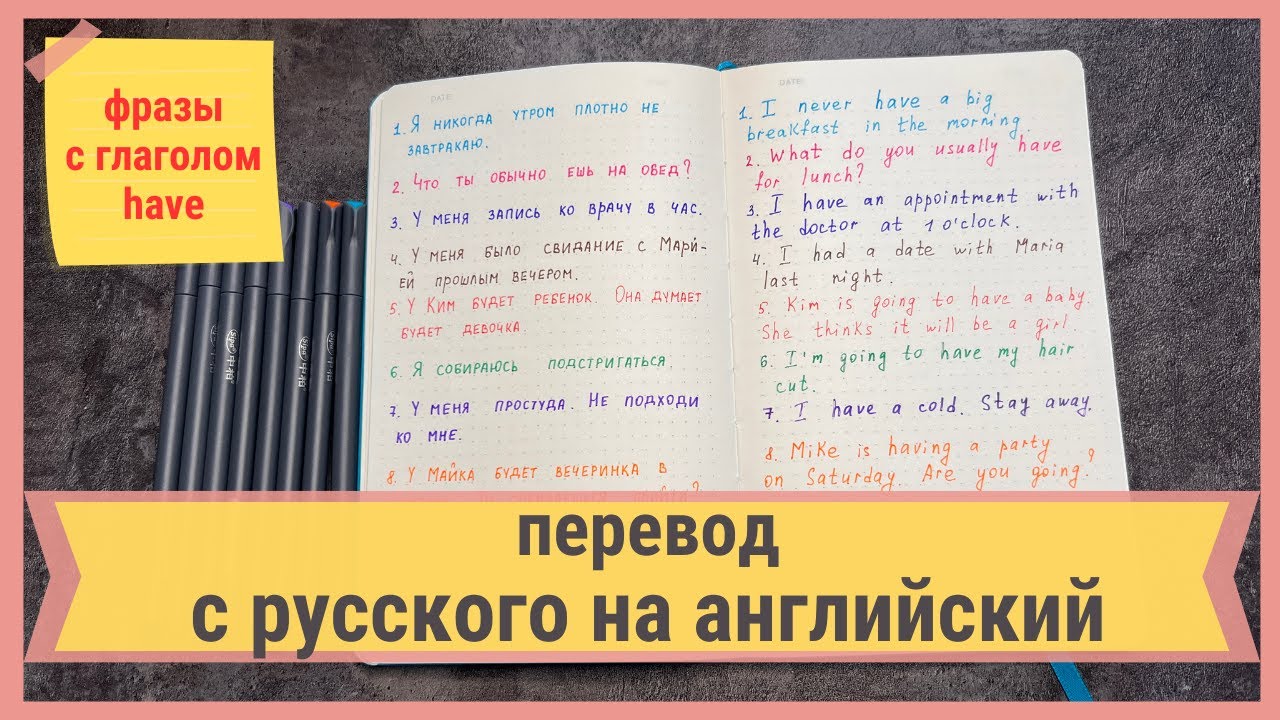 фразы
с глаголом
have
DATE:
1. Я никогда утром плотно не
завтракаю.
2. Что ты обычно ешь на обед?
3. У меня запись ко врачу в час.
4. У меня было свидание с Марй-
ей прошлым вечером.
5. У Ким будет ребенок. Она думает
будет девочка.
6. Я собираюсь подстригаться.
7. У меня простуда. Не подходи
ко мне.
8. У Майка будет вечеринка в
DATE:
1. I never have a big
breakfast in the morning
2. What do you usually have
for lunch?
3. I have an appointment with
the doctor at 1 o'clock.
4. I had a date with Maria
last night.
5. Kim is going to have a baby.
She thinks it will be a girl.
6. I'm going to have my hair
cut.
7. I have a cold. Stay away.
8. Mike is having a party
on Saturday. Are you going?
перевод
с русского на английский